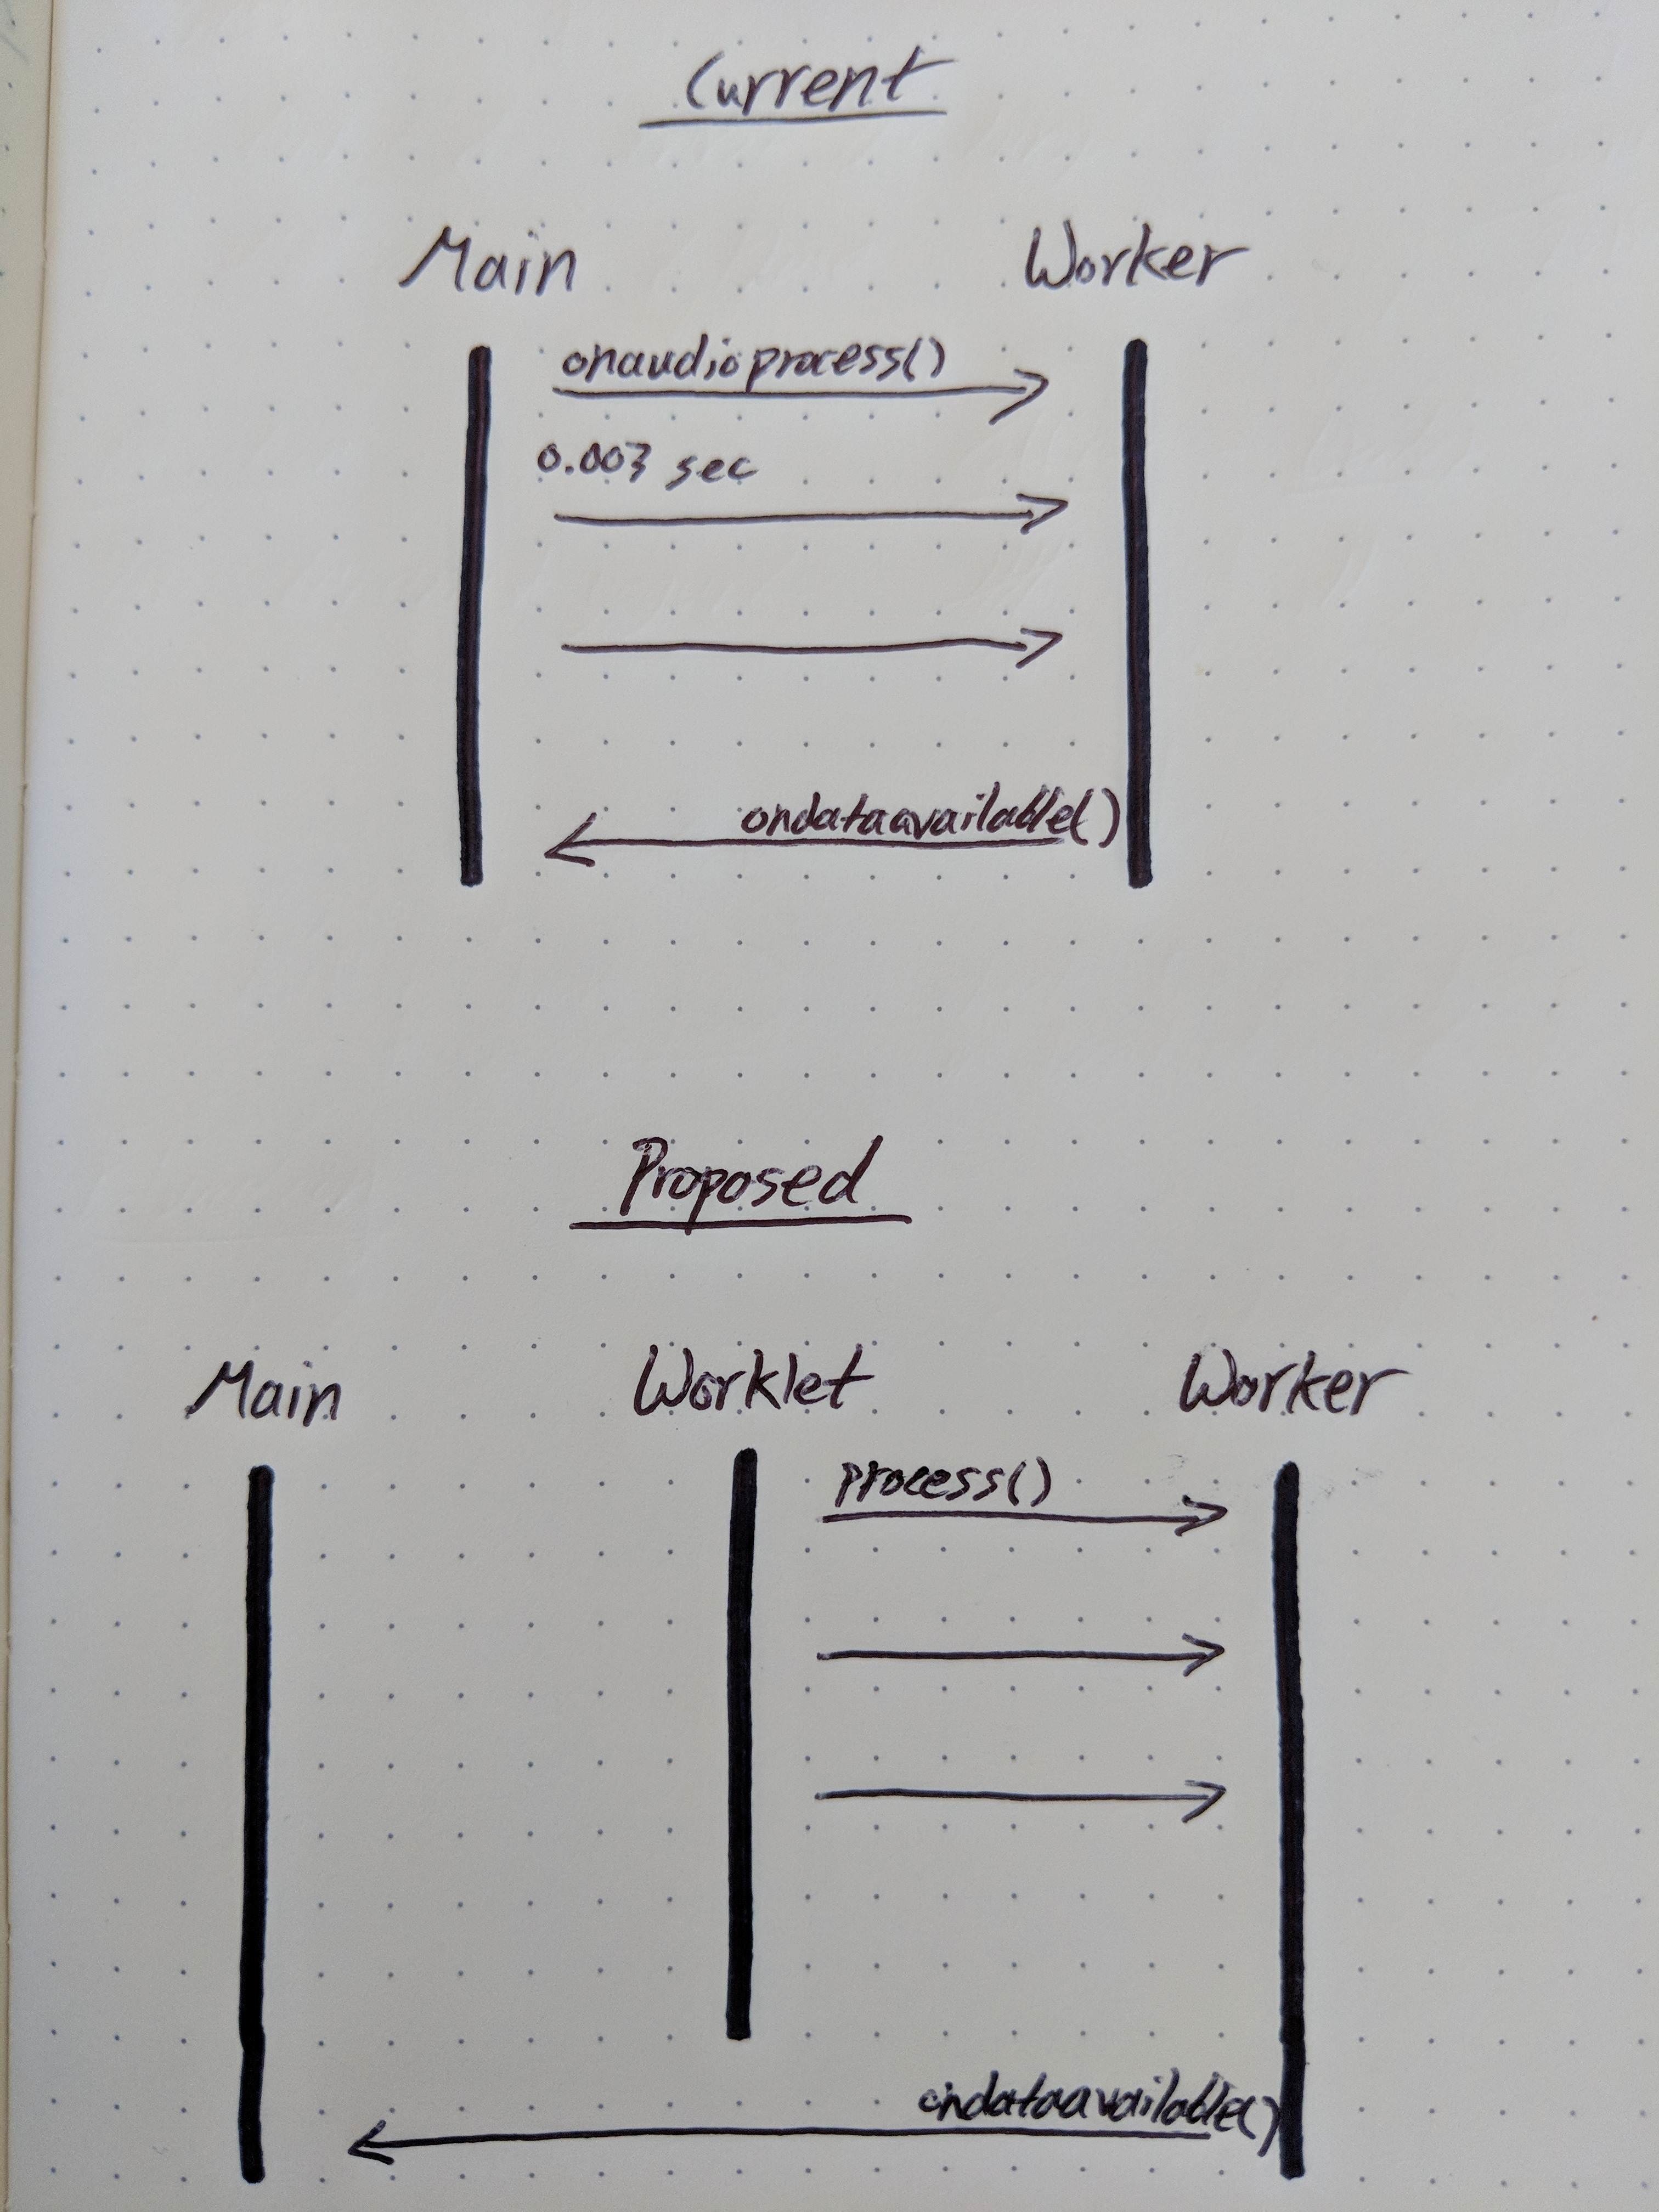 Current
Main Worker
onaudioprocess()
0.003 sec
ondataavailable()
Proposed
Main Worklet Worker
process()
ondataavailable()